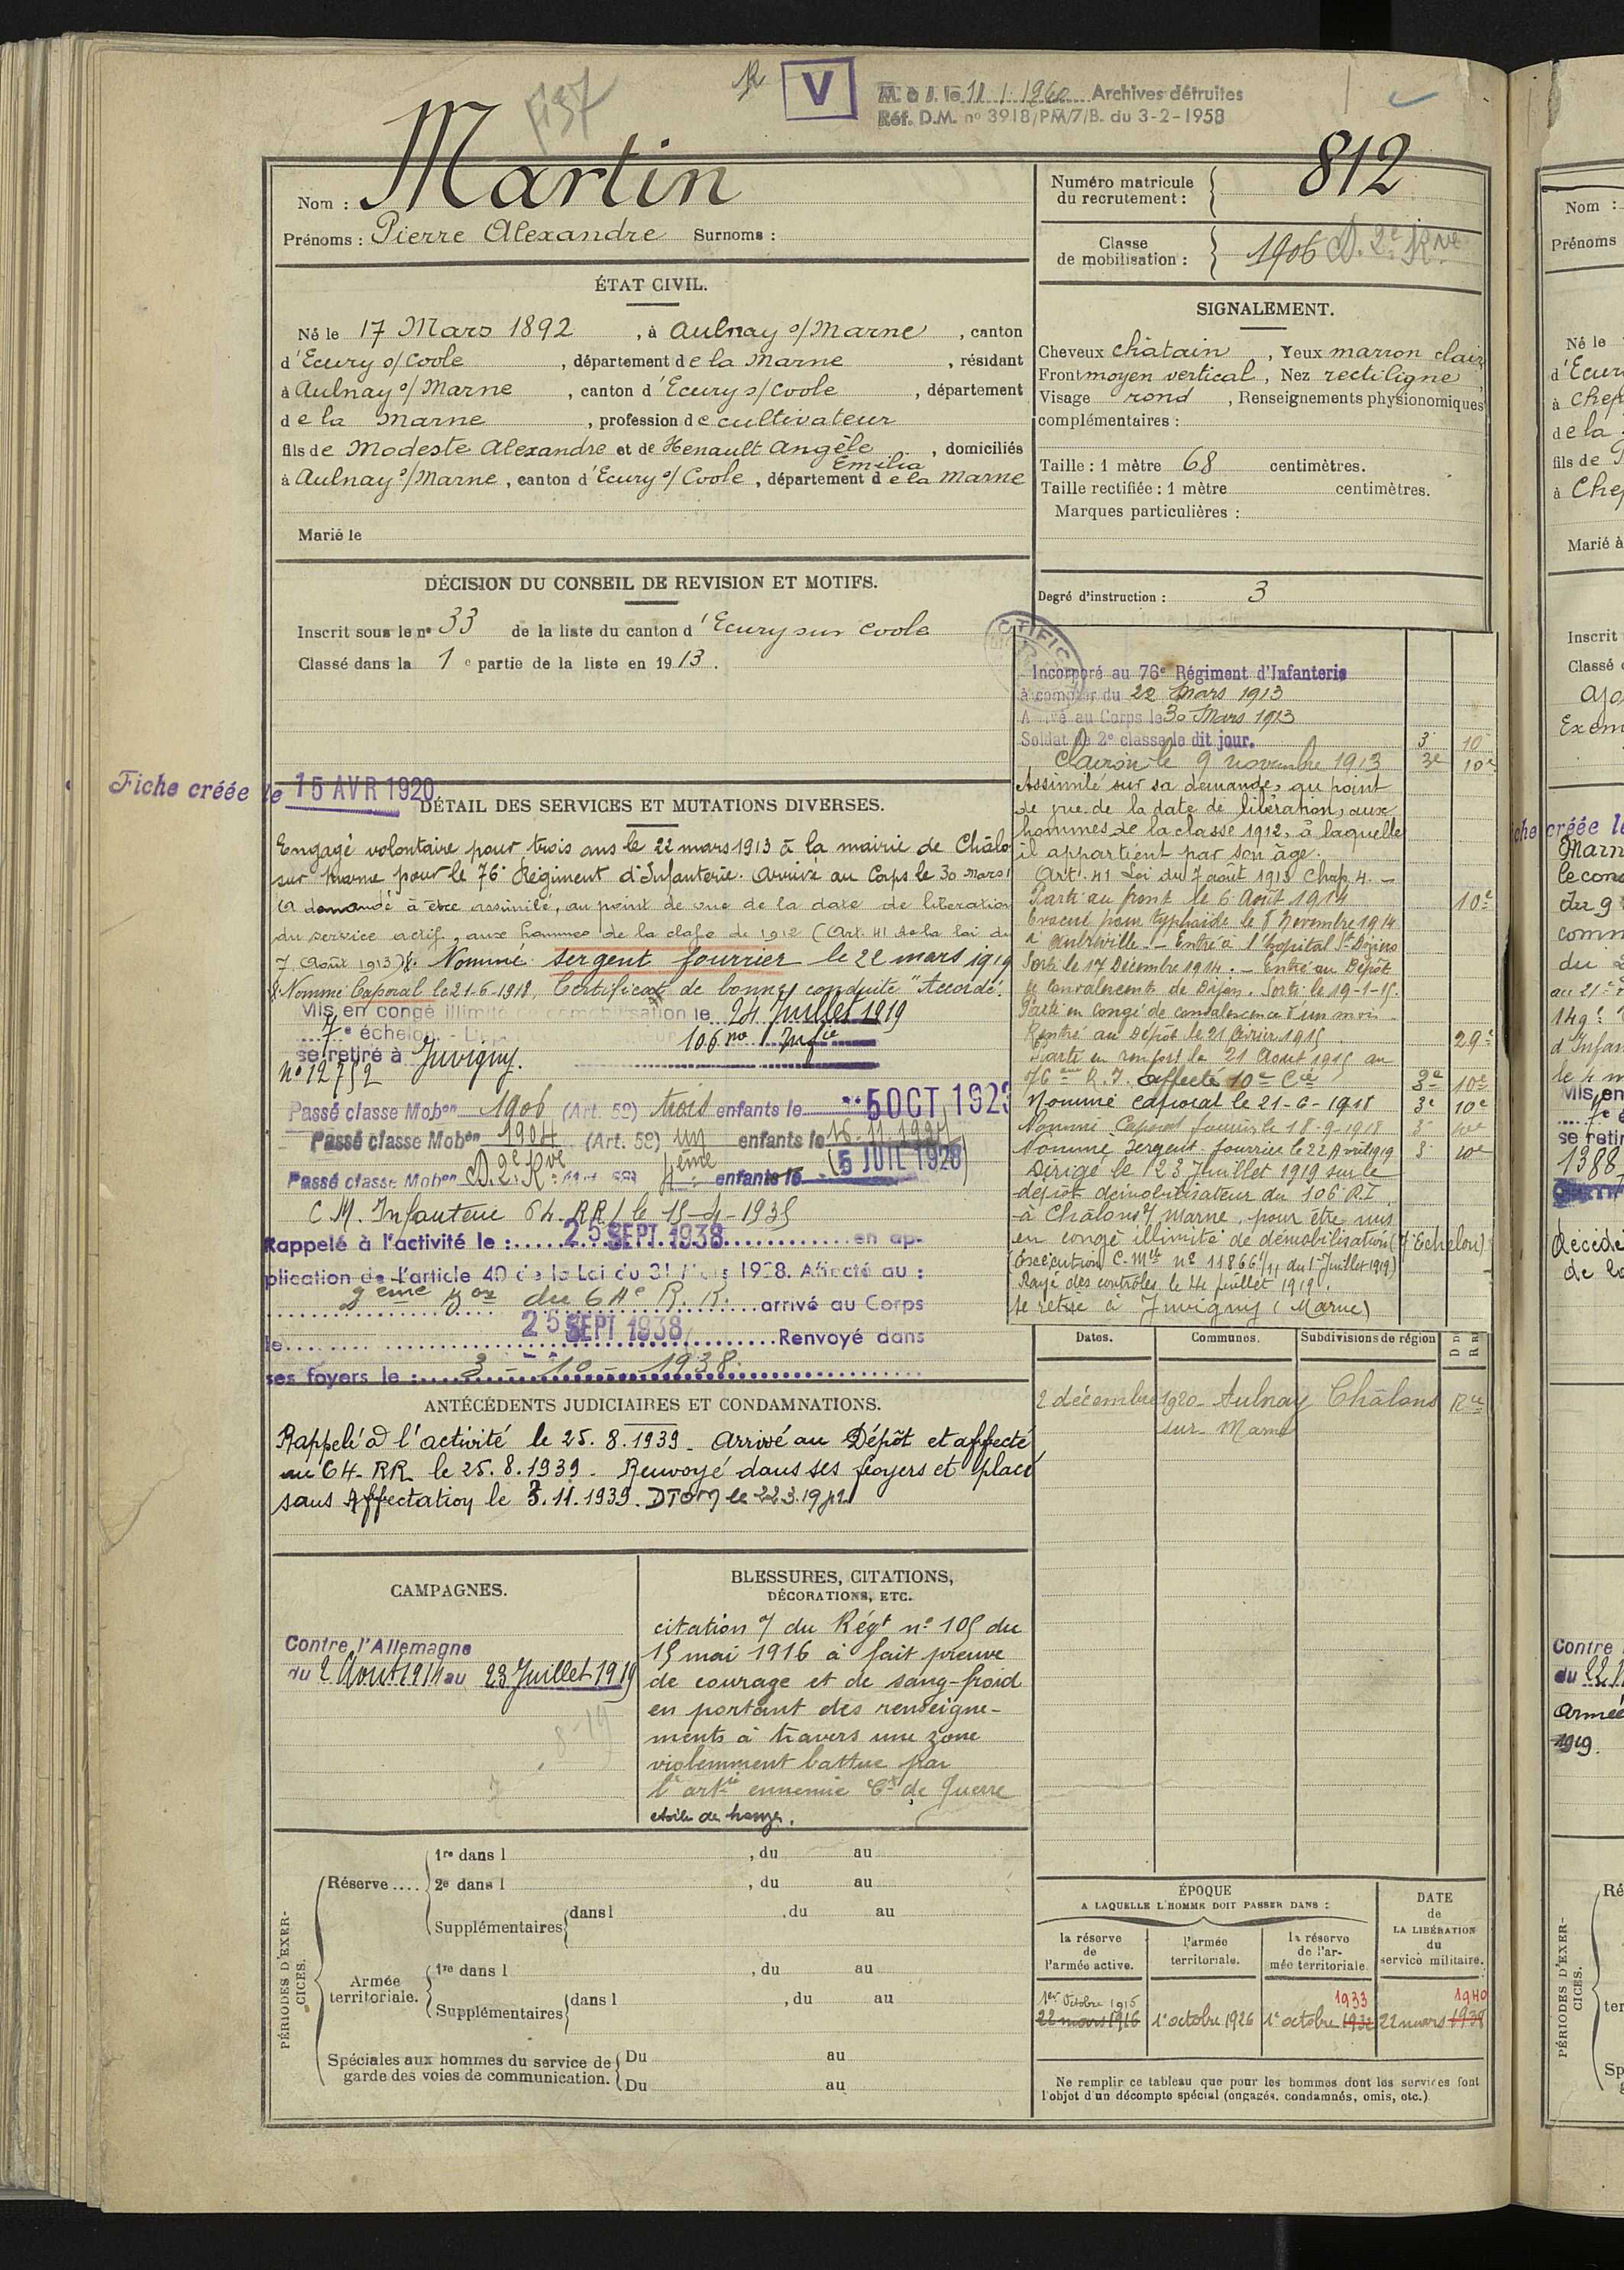 137
V
M. à J. le 11.1.1960 Archives détruites
Réf. D.M. nº 3918/PM/7/B. du 3-2-1958
Nom : Martin
Prénoms : Pierre Alexandre Surnoms :
Numéro matricule du recrutement : 812
Classe de mobilisation : 1906 D. 2e Rve
ÉTAT CIVIL.
Né le 17 Mars 1892, à Aulnay s/Marne, canton
d'Ecury s/Coole, département de la Marne, résidant
à Aulnay s/Marne, canton d'Ecury s/Coole, département
de la Marne, profession de cultivateur
fils de Modeste Alexandre et de Henault Angèle Emilia, domiciliés
à Aulnay s/Marne, canton d'Ecury s/Coole, département de la Marne
Marié le
SIGNALEMENT.
Cheveux châtain, Yeux marron clair
Front moyen vertical, Nez rectiligne
Visage rond, Renseignements physionomiques
complémentaires :
Taille : 1 mètre 68 centimètres.
Taille rectifiée : 1 mètre centimètres.
Marques particulières :
Degré d'instruction : 3
DÉCISION DU CONSEIL DE REVISION ET MOTIFS.
Inscrit sous le nº 33 de la liste du canton d'Ecury sur Coole
Classé dans la 1e partie de la liste en 1913.
Fiche créée le 15 AVR 1920
DÉTAIL DES SERVICES ET MUTATIONS DIVERSES.
Engagé volontaire pour trois ans le 22 mars 1913 à la mairie de Châlo
sur Marne pour le 76e Régiment d'Infanterie. Arrivé au Corps le 30 mars
A demandé à être assimilé, au point de vue de la date de liberation
du service actif, aux hommes de la classe de 1912 (Art. 41 de la loi du
7 Août 1913). Nommé sergent fourrier le 22 mars 1919
Nommé Caporal le 21-6-1918, Certificat de bonne conduite "Accordé".
Mis en congé illimité de démobilisation le 24 Juillet 1919
7e échelon. 106 Infie
se retire à Juvigny.
Nº 12752
Passé classe Mobon 1906 (Art. 58) trois enfants le 5 OCT 1923
Passé classe Mobon 1904 (Art. 58) un enfants le 16.11.1924
Passé classe Mobon D. 2e Rve (Art. 58) 4ème enfants le (5 JUIL 1928)
C.M. Infanterie 64. RR/ le 15-4-1935
Rappelé à l'activité le : 25 SEPT 1938 en ap-
plication de l'article 40 de la Loi du 31 Mars 1928. Affecté au :
du 64e R.R. arrivé au Corps
le 25 SEPT 1938 Renvoyé dans
ses foyers le : 3 - 10 - 1938.
Incorporé au 76e Régiment d'Infanterie
à compter du 22 Mars 1913
Arrivé au Corps le 30 Mars 1913
Soldat de 2e classe le dit jour. 3 10
Clairon le 9 novembre 1913 3e 10e
Assimilé sur sa demande, au point
de vue de la date de libération, aux
hommes de la classe 1912, à laquelle
il appartient par son âge.
Art. 41 Loi du 7 août 1913 Chap. 4. –
Parti au front le 6 Août 1914 10e
Evacué pour typhoïde le 8 Novembre 1914
à Aubréville. – Entré à l'hopital
Sorti le 17 Décembre 1914. – Entré au Dépôt
de convalescents de Dijon. Sorti le 19-1-15.
Parti en congé de convalescence d'un mois
Rentré au Dépôt le 21 février 1915 29e
Parti en renfort le 21 Aout 1915 au
76ème R.I. affecté 10e Cie 3e 10e
Nommé caporal le 21-6-1918 3e 10e
Nommé Caporal fourrier le 18-9-1918 3 10e
Nommé Sergent fourrier le 22 Avril 1919 3 10e
Dirigé le 23 Juillet 1919 sur le
dépôt démobilisateur du 106 R.I.
à Châlons s/ Marne, pour être mis
en congé illimité de démobilisation (7 Echelon)
(Exécution C. Mlle nº 11866 1/11 du 1er Juillet 1919)
Rayé des contrôles le 24 juillet 1919.
Se retire à Juvigny (Marne)
Dates. Communes. Subdivisions de région D R
2 décembre 1920. Aulnay sur Marne Châlons Rce
ANTÉCÉDENTS JUDICIAIRES ET CONDAMNATIONS.
Rappelé à l'activité le 25.8.1939. Arrivé au Dépôt et affecté
au 64. RR le 25.8.1939. Renvoyé dans ses foyers et placé
sans Affectation le 3.11.1939.
CAMPAGNES.
Contre l'Allemagne
du 2 Aout 1914 au 23 Juillet 1919
BLESSURES, CITATIONS,
DÉCORATIONS, ETC.
citation o/ du Régt nº 105 du
15 mai 1916 à fait preuve
de courage et de sang-froid
en portant des renseigne-
ments à travers une zone
violemment battue par
l'artie ennemie Cx de Guerre
etoile de bronze.
PÉRIODES D'EXERCICES.
Réserve....
1re dans l , du au
2e dans l , du au
Supplémentaires dans l , du au
Armée territoriale.
1re dans l , du au
Supplémentaires dans l , du au
Spéciales aux hommes du service de garde des voies de communication.
Du au
Du au
ÉPOQUE
A LAQUELLE L'HOMME DOIT PASSER DANS :
la réserve de l'armée active.
l'armée territoriale.
la réserve de l'armée territoriale.
DATE de LA LIBÉRATION du service militaire.
1er Octobre 1915 1933 1940
22 mars 1916 1er octobre 1926 1er octobre 1932 22 mars 1938
Ne remplir ce tableau que pour les hommes dont les services font
l'objet d'un décompte spécial (engagés, condamnés, omis, etc.)
Nom :
Prénoms
Né le
d'Ecur
à Chep
de la
fils de
à Chep
Marié à
Inscrit
Classé
Exem
créée le
Contre
du 22
Armée
1919.